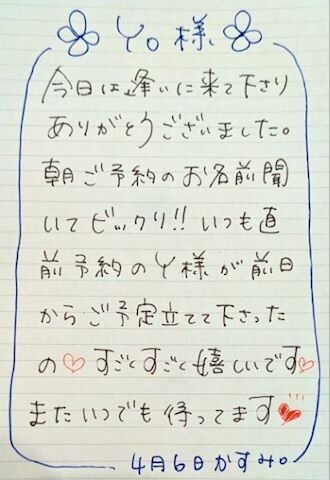 Yo様
今日は逢いに来て下さり
ありがとうございました。
朝ご予約のお名前聞
いてビックリ!!いつも直
前予約のY様が前日
からご予定立てて下さった
の♡すごくすごく嬉しいです♡
またいつでも待ってます♥
4月6日かすみ。